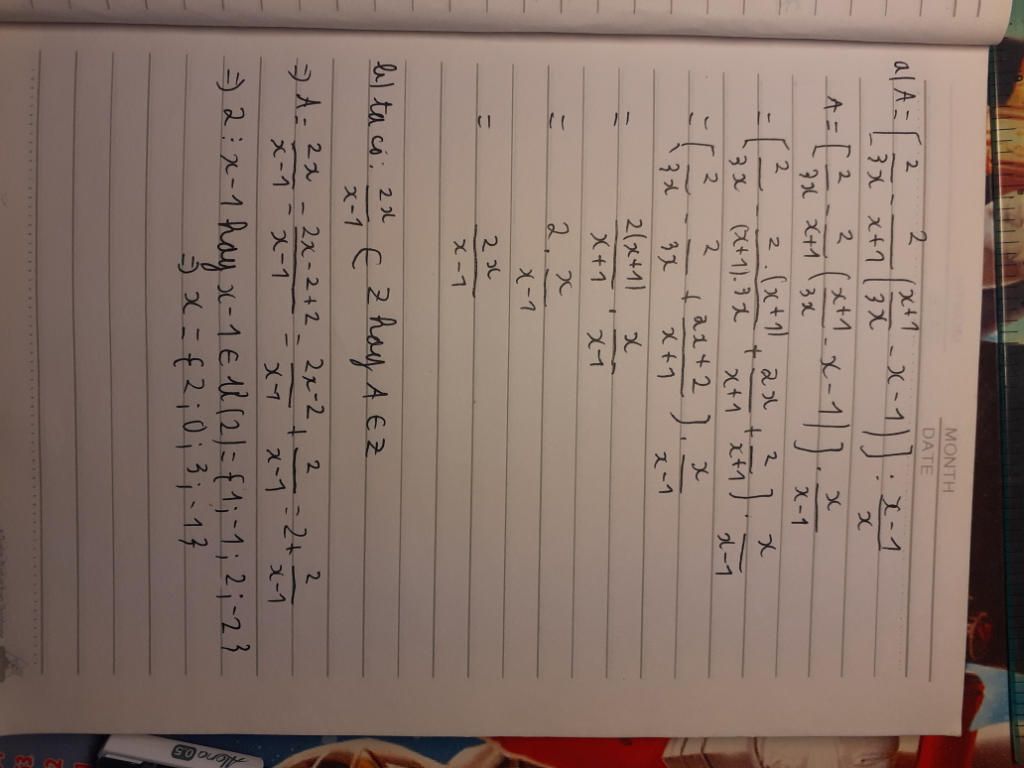 MONTH
DATE
a) A = [2/3x - 2/x+1 (x+1/3x - x - 1)] : x-1/x
A = [2/3x - 2/x+1 (x+1/3x - x - 1)] . x/x-1
= [2/3x - 2.(x+1)/(x+1).3x + 2x/x+1 + 2/x+1] . x/x-1
= [2/3x - 2/3x + 2x+2/x+1] . x/x-1
= 2(x+1)/x+1 . x/x-1
= 2 . x/x-1
= 2x/x-1
b) ta có: 2x/x-1 ∈ Z hay A ∈ Z
=) A = 2x/x-1 = 2x-2+2/x-1 = 2x-2/x-1 + 2/x-1 = 2 + 2/x-1
=) 2 ⋮ x-1 hay x-1 ∈ Ư(2) = {1; -1; 2; -2}
=) x = {2; 0; 3; -1}
Aleno 0.5